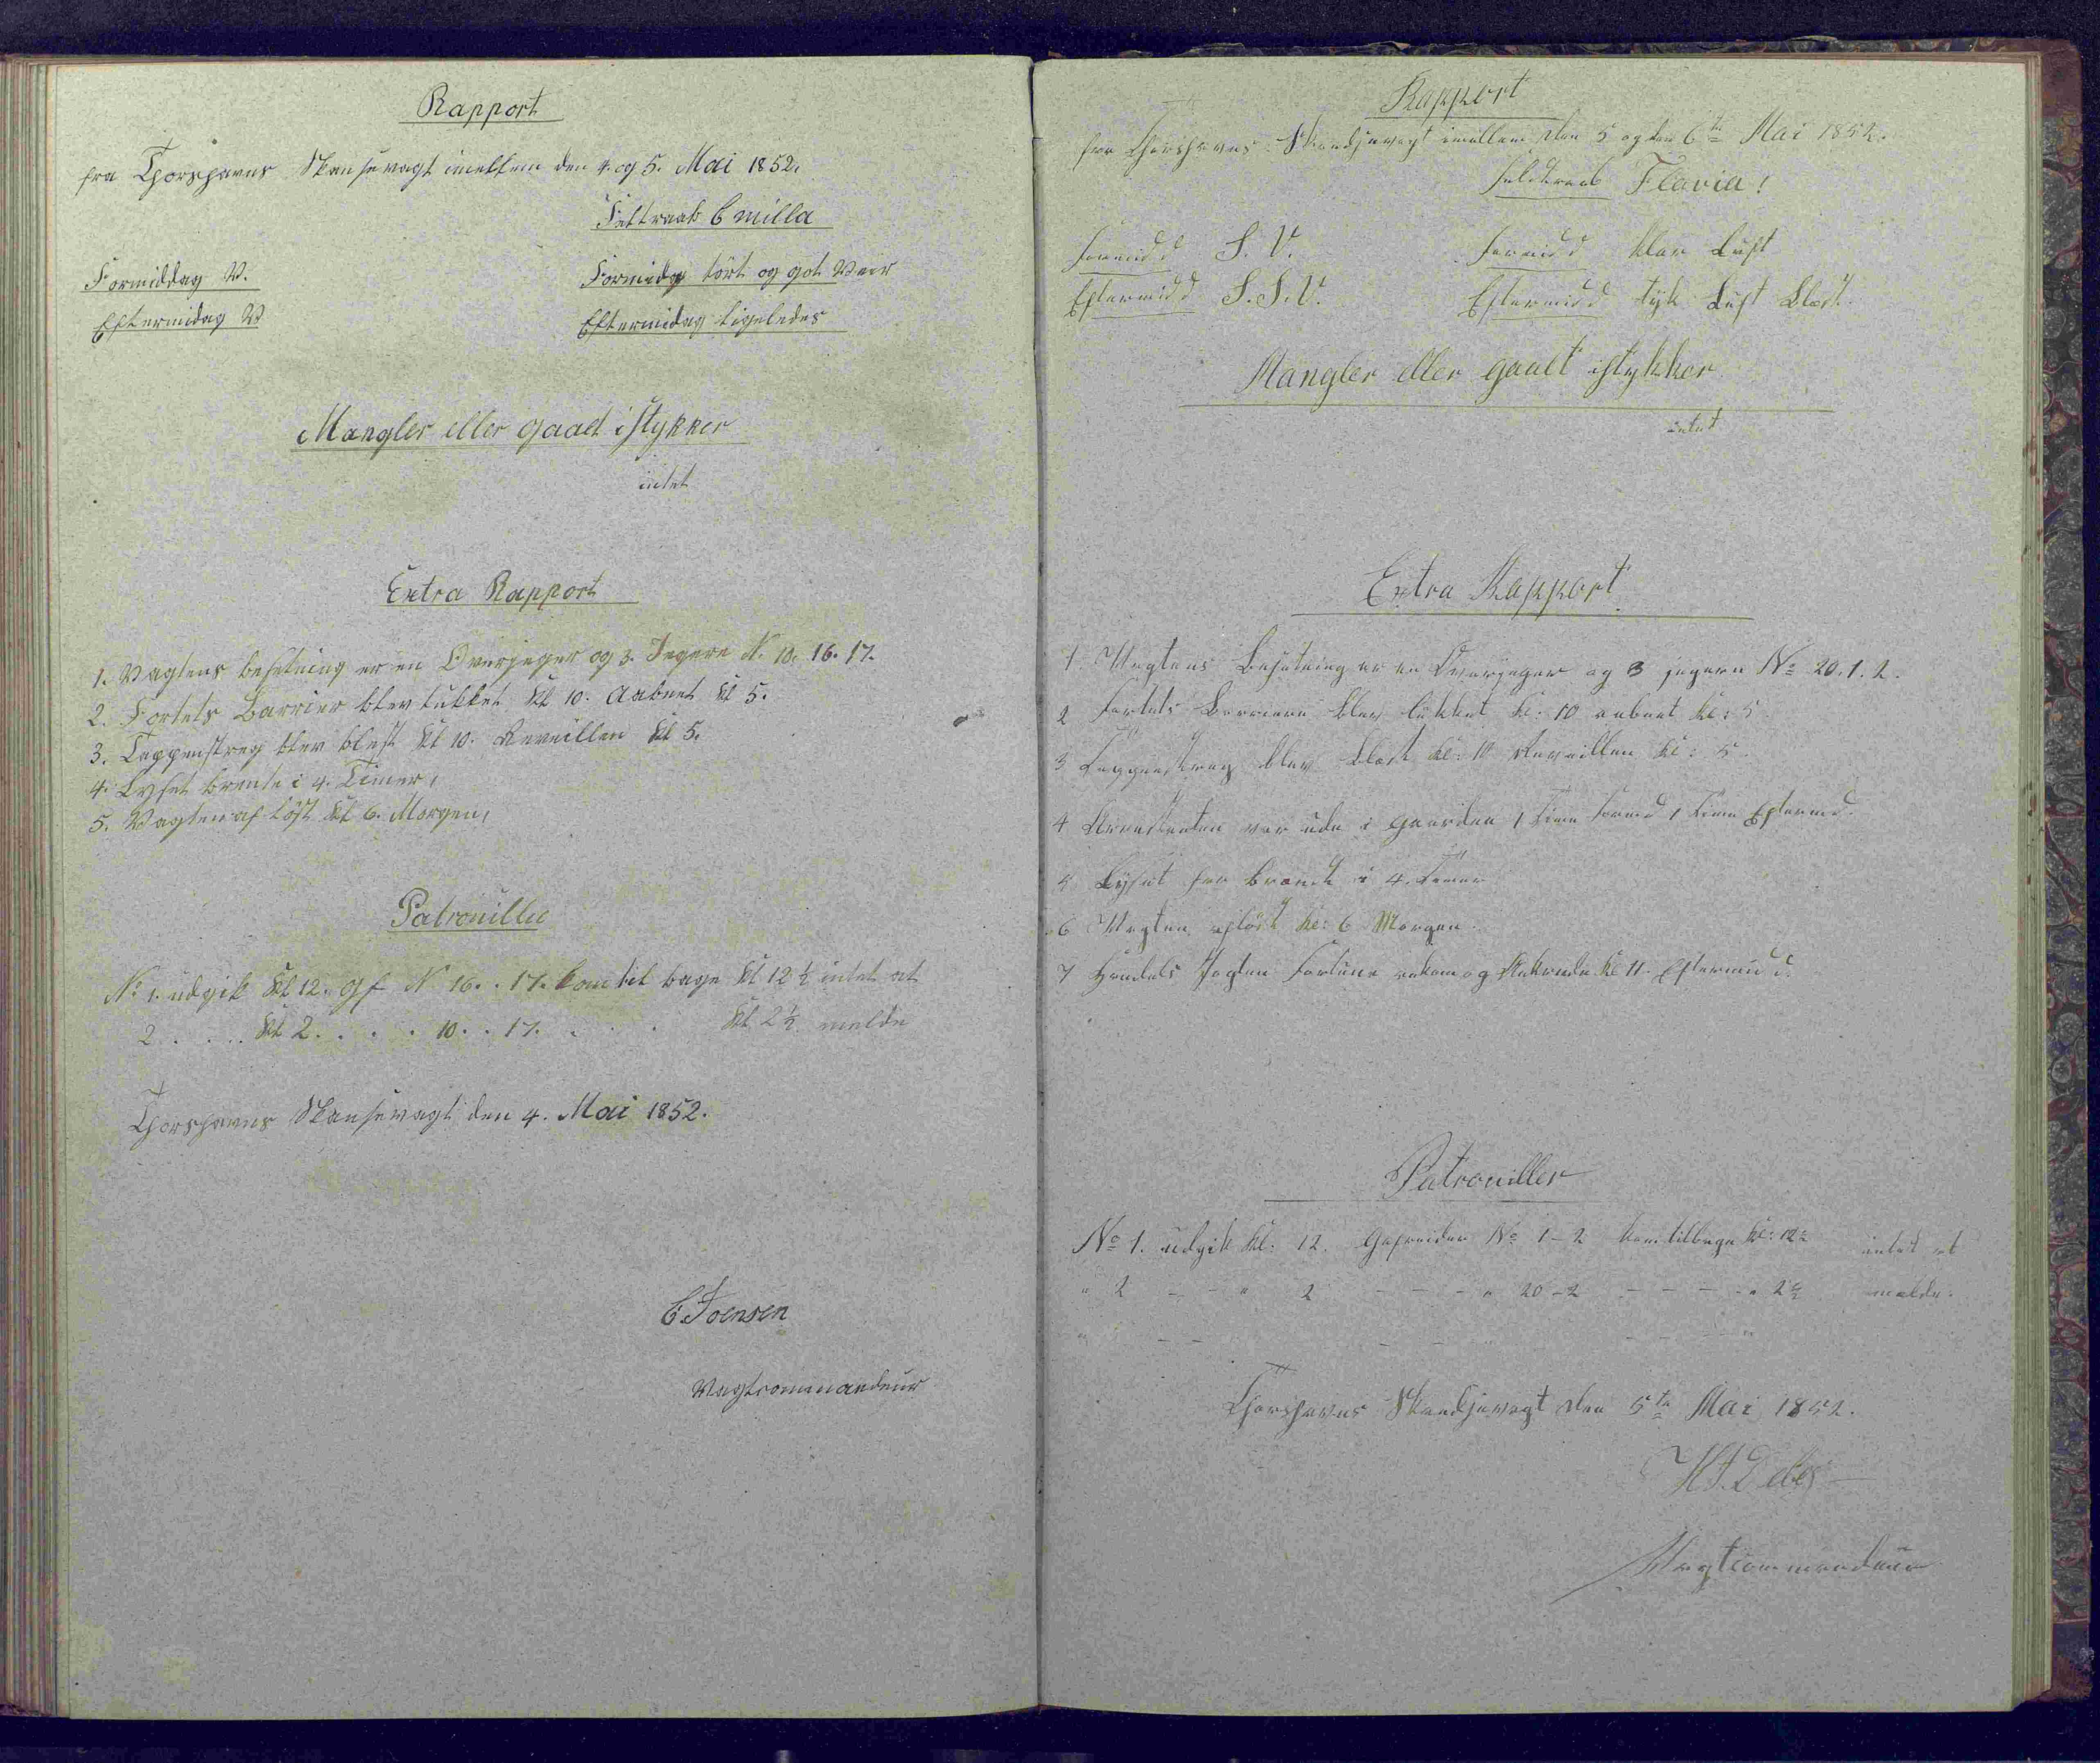 Rapport
fra Thorshavns Skansevagt imellem den 4. og 5. Mai 1852.
Feltraab Emilla
Formiddag V.
Formidg tört og got Veir
Eftermidag V
Eftermidag ligeledes
Mangler eller gaaet istykker
intet
Extra Rapport
1. Vagtens besetning er en Overjeger og 3. Jegere N. 10. 16. 17.
2. Fortets Barrier blev lukket Kl 10. Aabnet Kl 5.
3. Tappenstreg blev blest Kl 10. Reveillen Kl 5.
4. Lyset brente i 4. Timer,
5. Vagten af löst Kl 6. Morgen,
Patrouille
No 1. udgik Kl 12. Gf N 16. . 17. kom til bage Kl 12 ½ intet at
2 . . . . Kl 2. . . . . 10. . 17. . . . Kl 2 ½ melde
Thorshavns Skansevagt den 4. Mai 1852.
C. Joensen
Vagtcommandeur
Rapport
fra Thorshavns Skandsevagt imellem den 5 og den 6te Mai 1852.
Feldtraab Flavia!
Formidd S. V.
Formidd klar Luft
Eftermidd S. S. V.
Eftermidd tyk Luft Blæst.
Mangler eller gaaet istykker
intet
Extra Rapport
1. Vagtens Besetning er en Overjeger og 3 jegere No 20. 1. 2.
2 Fortets Barriere blev lukket Kl: 10 aabnet Kl: 5
3 Tappenstreg blev blæst Kl: 10 Reveillen Kl: 5
4 Arrestanten var ude i Gaarden 1 Time Formd 1 Time Eftermd.
5 Lyset har brændt i 4. Timer
6 Vagten aflöst Kl: 6 Morgen
7 Handels Jagten Fortuna ankom og Ankrede Kl 11. Eftermidd.
Patrouiller
No 1. udgik Kl: 12. Gefreider No 1 - 2 kom tilbage Kl: 12½ intet at
" 2 - - " 2 - - - " 20 - 2 - - - - " 2½ melde.
Thorshavns Skandsevagt den 5te Mai 1852.
Debes
Vagtcommandeur